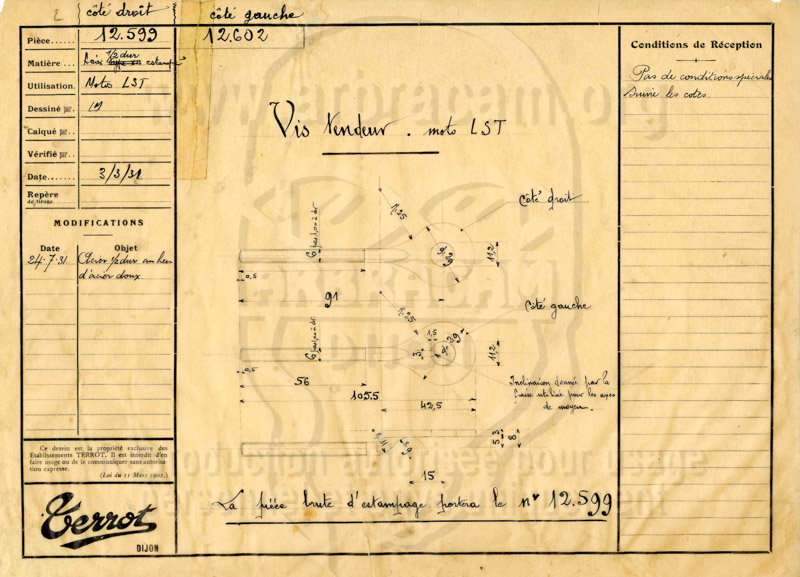 côté droit côté gauche
Pièce...... 12.599 12.602
Matière... Acier 1/2 dur estampé
Utilisation. Motos LST
Dessiné par.
Calqué par.
Vérifié par.
Date....... 3/3/31
Repère
de tirage
MODIFICATIONS
Date Objet
24-7-31. Acier 1/2 dur au lieu
d'acier doux.
Ce dessin est la propriété exclusive des
Etablissements TERROT. Il est interdit d'en
faire usage ou de le communiquer sans autorisa-
tion expresse.
(Loi du 11 Mars 1902.)
Terrot
DIJON
Vis tendeur. moto LST
Côté droit
R.25
6 pas 1,00 à dr
11,2
0,5
91
R.25
Côté gauche
1,5
6 pas 1,00 à dr
3
11,2
0,5
56
Inclinaison donnée par la
fraise utilisée pour les axes
de moyeu.
105.5
42,5
R.11
R.9
5
8
15
La pièce brute d'estampage portera le n° 12.599
Conditions de Réception
Pas de conditions spéciales
suivre les cotes.